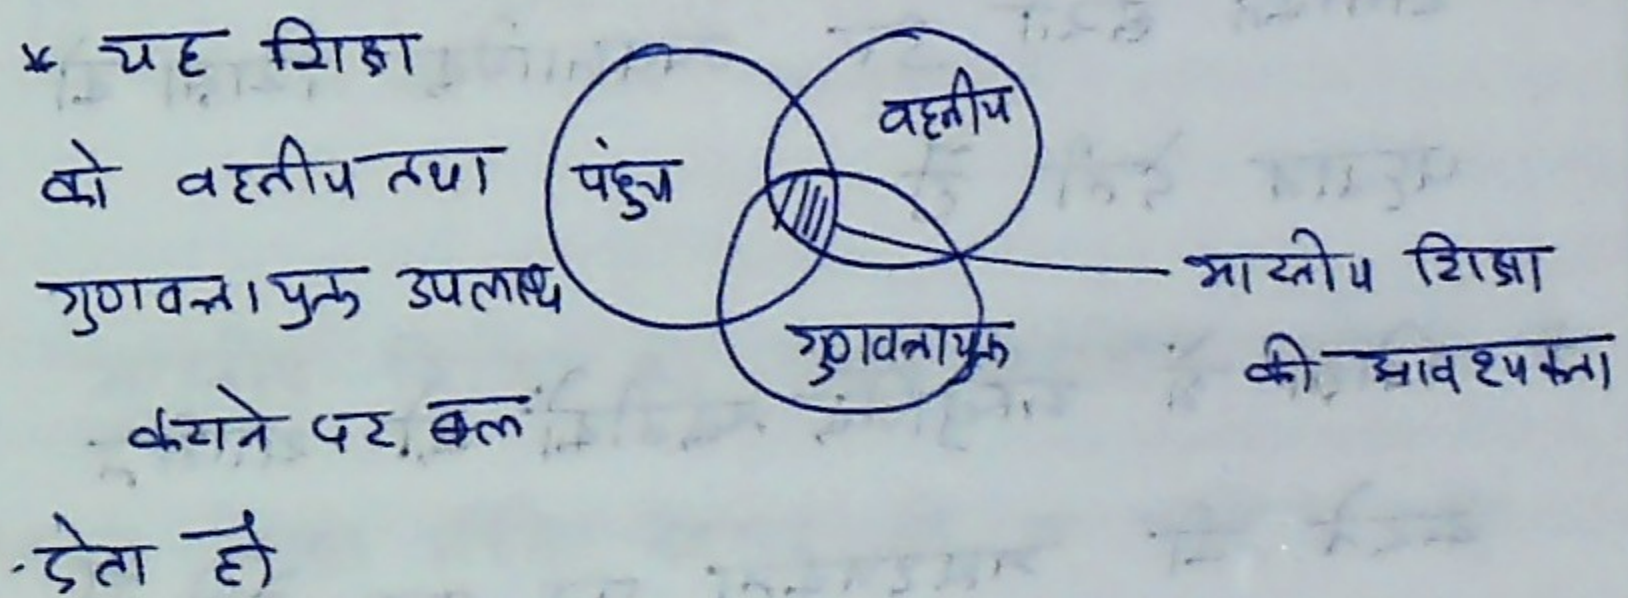 * यह शिक्षा
को वहनीय तथा
गुणवत्तायुक्त उपलब्ध
कराने पर बल
देता है
पंहुच
वहनीय
गुणवत्तायुक्त
भारतीय शिक्षा
की आवश्यकता